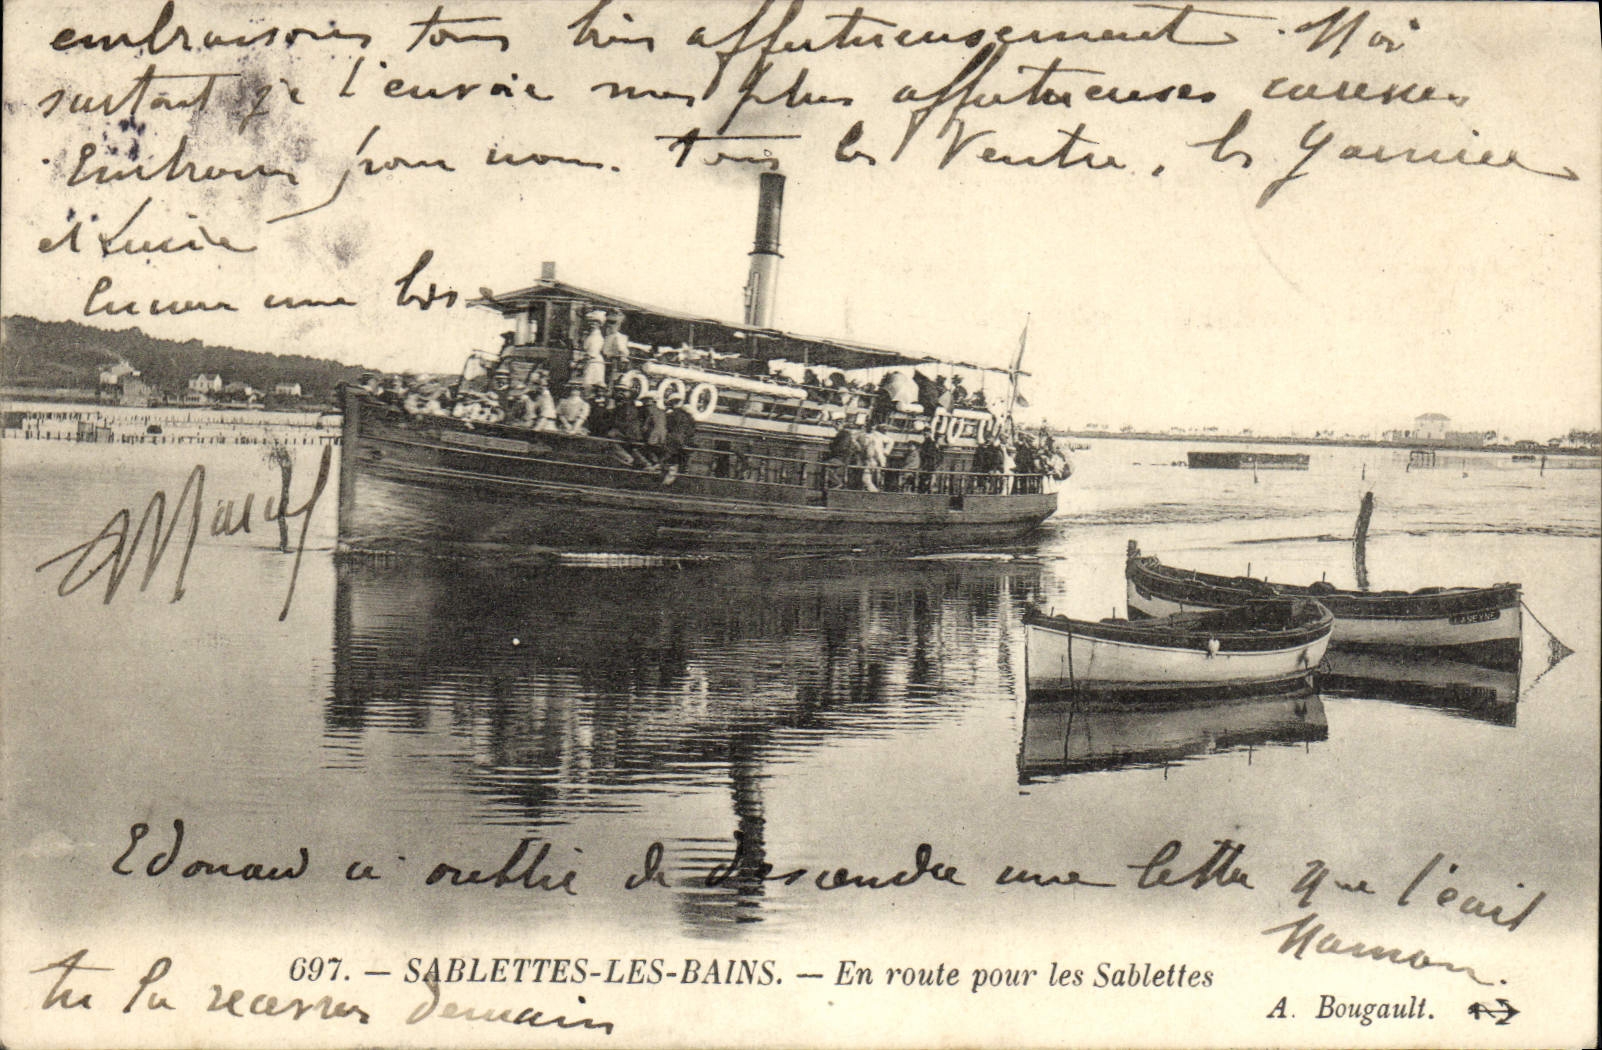 embrassons tous bien affectueusement. Moi
surtout je t'envoie mes plus affectueuses caresses
Embrasse pour nous tous les Ventre, les Garnier
et Lucie
Encore une bise
Marcel
LASEYNE
Edouard a oublié de descendre une lettre que t'écrit
Maman.
tu la recevras demain
697. — SABLETTES-LES-BAINS. — En route pour les Sablettes
A. Bougault.